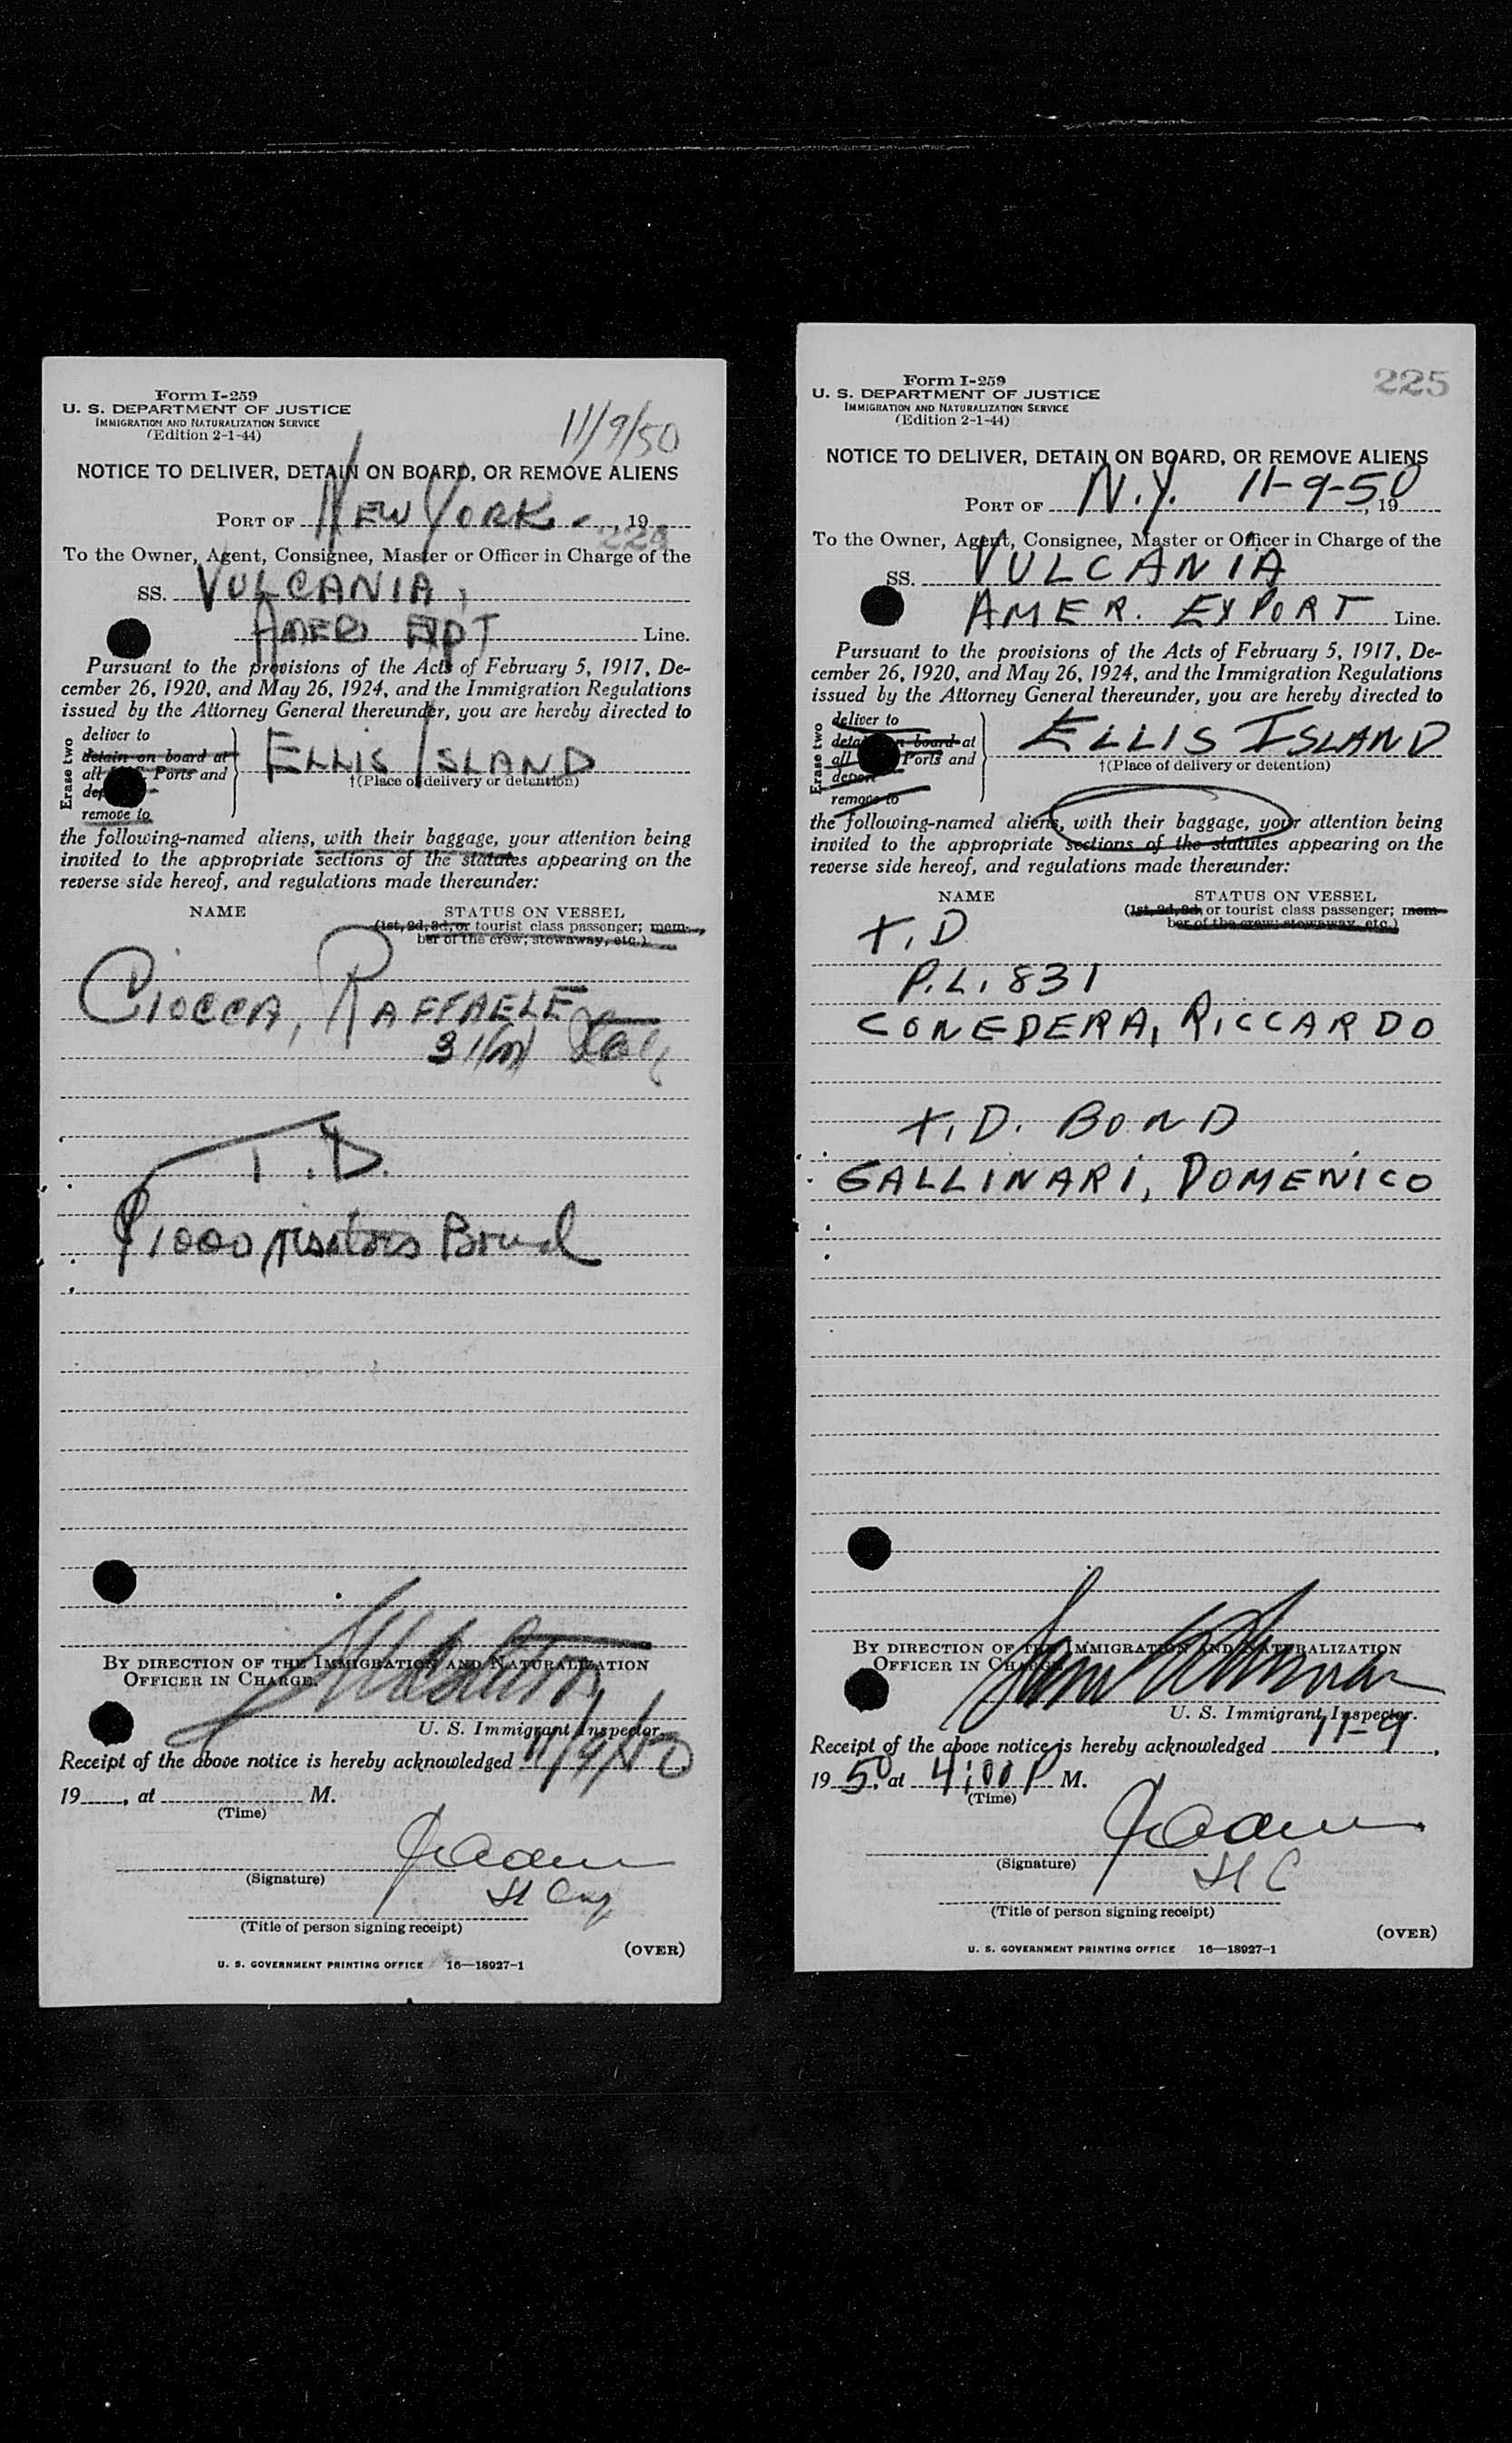 Form I-259
U. S. DEPARTMENT OF JUSTICE
IMMIGRATION AND NATURALIZATION SERVICE
(Edition 2-1-44)
11/9/50
NOTICE TO DELIVER, DETAIN ON BOARD, OR REMOVE ALIENS
PORT OF NEW YORK, 19
To the Owner, Agent, Consignee, Master or Officer in Charge of the
SS. VULCANIA,
AMER EXPT Line.
Pursuant to the provisions of the Acts of February 5, 1917, De-
cember 26, 1920, and May 26, 1924, and the Immigration Regulations
issued by the Attorney General thereunder, you are hereby directed to
Erase two
deliver to
detain on board at
all Ports and
remove to
ELLIS ISLAND
†(Place of delivery or detention)
the following-named aliens, with their baggage, your attention being
invited to the appropriate sections of the statutes appearing on the
reverse side hereof, and regulations made thereunder:
NAME STATUS ON VESSEL
(1st, 2d, 3d, or tourist class passenger; mem-
ber of the crew; stowaway, etc.)
CIOCCA, RAFFAELE
31/m
T.D.
$1000 visitors Bond
BY DIRECTION OF THE IMMIGRATION AND NATURALIZATION
OFFICER IN CHARGE.
U. S. Immigrant Inspector.
Receipt of the above notice is hereby acknowledged 11/9/50
19, at M.
(Time)
(Signature)
(Title of person signing receipt)
(OVER)
U. S. GOVERNMENT PRINTING OFFICE 16—18927-1
Form I-259
U. S. DEPARTMENT OF JUSTICE
IMMIGRATION AND NATURALIZATION SERVICE
(Edition 2-1-44)
225
NOTICE TO DELIVER, DETAIN ON BOARD, OR REMOVE ALIENS
PORT OF N.Y. 11-9-50, 19
To the Owner, Agent, Consignee, Master or Officer in Charge of the
SS. VULCANIA
AMER. EXPORT Line.
Pursuant to the provisions of the Acts of February 5, 1917, De-
cember 26, 1920, and May 26, 1924, and the Immigration Regulations
issued by the Attorney General thereunder, you are hereby directed to
Erase two
deliver to
detain on board at
all Ports and
deport
remove to
ELLIS ISLAND
†(Place of delivery or detention)
the following-named aliens, with their baggage, your attention being
invited to the appropriate sections of the statutes appearing on the
reverse side hereof, and regulations made thereunder:
NAME STATUS ON VESSEL
(1st, 2d, 3d, or tourist class passenger; mem-
ber of the crew; stowaway, etc.)
T.D
P.L. 831
CONEDERA, RICCARDO
T.D. BOND
GALLINARI, DOMENICO
BY DIRECTION OF THE IMMIGRATION AND NATURALIZATION
OFFICER IN CHARGE.
U. S. Immigrant Inspector.
Receipt of the above notice is hereby acknowledged 11-9,
1950, at 4:00 P M.
(Time)
(Signature)
(Title of person signing receipt)
(OVER)
U. S. GOVERNMENT PRINTING OFFICE 16—18927-1